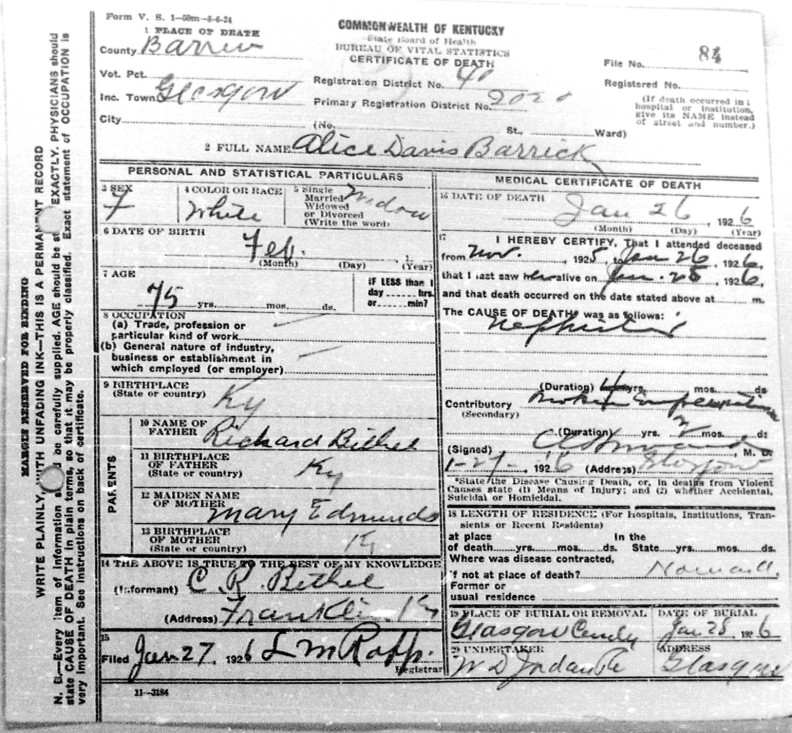 Form V. S. 1—50m—8-6-24
COMMONWEALTH OF KENTUCKY
State Board of Health
BUREAU OF VITAL STATISTICS
CERTIFICATE OF DEATH
1 PLACE OF DEATH
County Barren
Vot. Pct.
Inc. Town Glasgow
City
File No. 84
Registered No.
(If death occurred in a
hospital or institution,
give its NAME instead
of street and number.)
Registration District No. 40
Primary Registration District No. 2020
(No. St., Ward)
2 FULL NAME Alice Davis Barrick
PERSONAL AND STATISTICAL PARTICULARS
3 SEX
F
4 COLOR OR RACE
White
5 Single
Married
Widowed
or Divorced
(Write the word)
Widow
6 DATE OF BIRTH
Feb. 1
(Month) (Day) (Year)
7 AGE
75 yrs. mos. ds.
IF LESS than 1
day hrs.
or min?
8 OCCUPATION
(a) Trade, profession or
particular kind of work
(b) General nature of industry,
business or establishment in
which employed (or employer)
9 BIRTHPLACE
(State or country)
Ky
PARENTS
10 NAME OF
FATHER
Richard Bethel
11 BIRTHPLACE
OF FATHER
(State or country)
Ky
12 MAIDEN NAME
OF MOTHER
Mary Edmunds
13 BIRTHPLACE
OF MOTHER
(State or country)
Ky
14 THE ABOVE IS TRUE TO THE BEST OF MY KNOWLEDGE
(Informant) C. R. Bethel
(Address) Franklin Ky
15
Filed Jan 27 1926 L M Rapp.
Registrar
11—3184
MEDICAL CERTIFICATE OF DEATH
16 DATE OF DEATH
Jan 26, 1926
(Month) (Day) (Year)
17 I HEREBY CERTIFY, That I attended deceased
from Nov. 1925, Jan 26, 1926,
that I last saw her alive on Jan. 25, 1926,
and that death occurred on the date stated above at m.
The CAUSE OF DEATH was as follows:
Nephritis
(Duration) yrs. mos. ds
Contributory
(Secondary)
(Duration) yrs. 2 mos. ds.
(Signed) M. D.
1-27-, 1926 (Address) Glasgow
*State the Disease Causing Death, or, in deaths from Violent
Causes state (1) Means of Injury; and (2) whether Accidental,
Suicidal or Homicidal.
18 LENGTH OF RESIDENCE (For Hospitals, Institutions, Tran-
sients or Recent Residents)
at place In the
of death yrs. mos. ds. State yrs. mos. ds.
Where was disease contracted,
if not at place of death?
Former or
usual residence
19 PLACE OF BURIAL OR REMOVAL
Glasgow
DATE OF BURIAL
Jan 28 1926
20 UNDERTAKER
W D Jordan
ADDRESS
Glasgow
MARGIN RESERVED FOR BINDING
WRITE PLAINLY, WITH UNFADING INK—THIS IS A PERMANENT RECORD
N. B.—Every item of information be carefully supplied. AGE should be EXACTLY. PHYSICIANS should
state CAUSE OF DEATH in plain terms, so that it may be properly classified. Exact statement of OCCUPATION is
very important. See instructions on back of certificate.